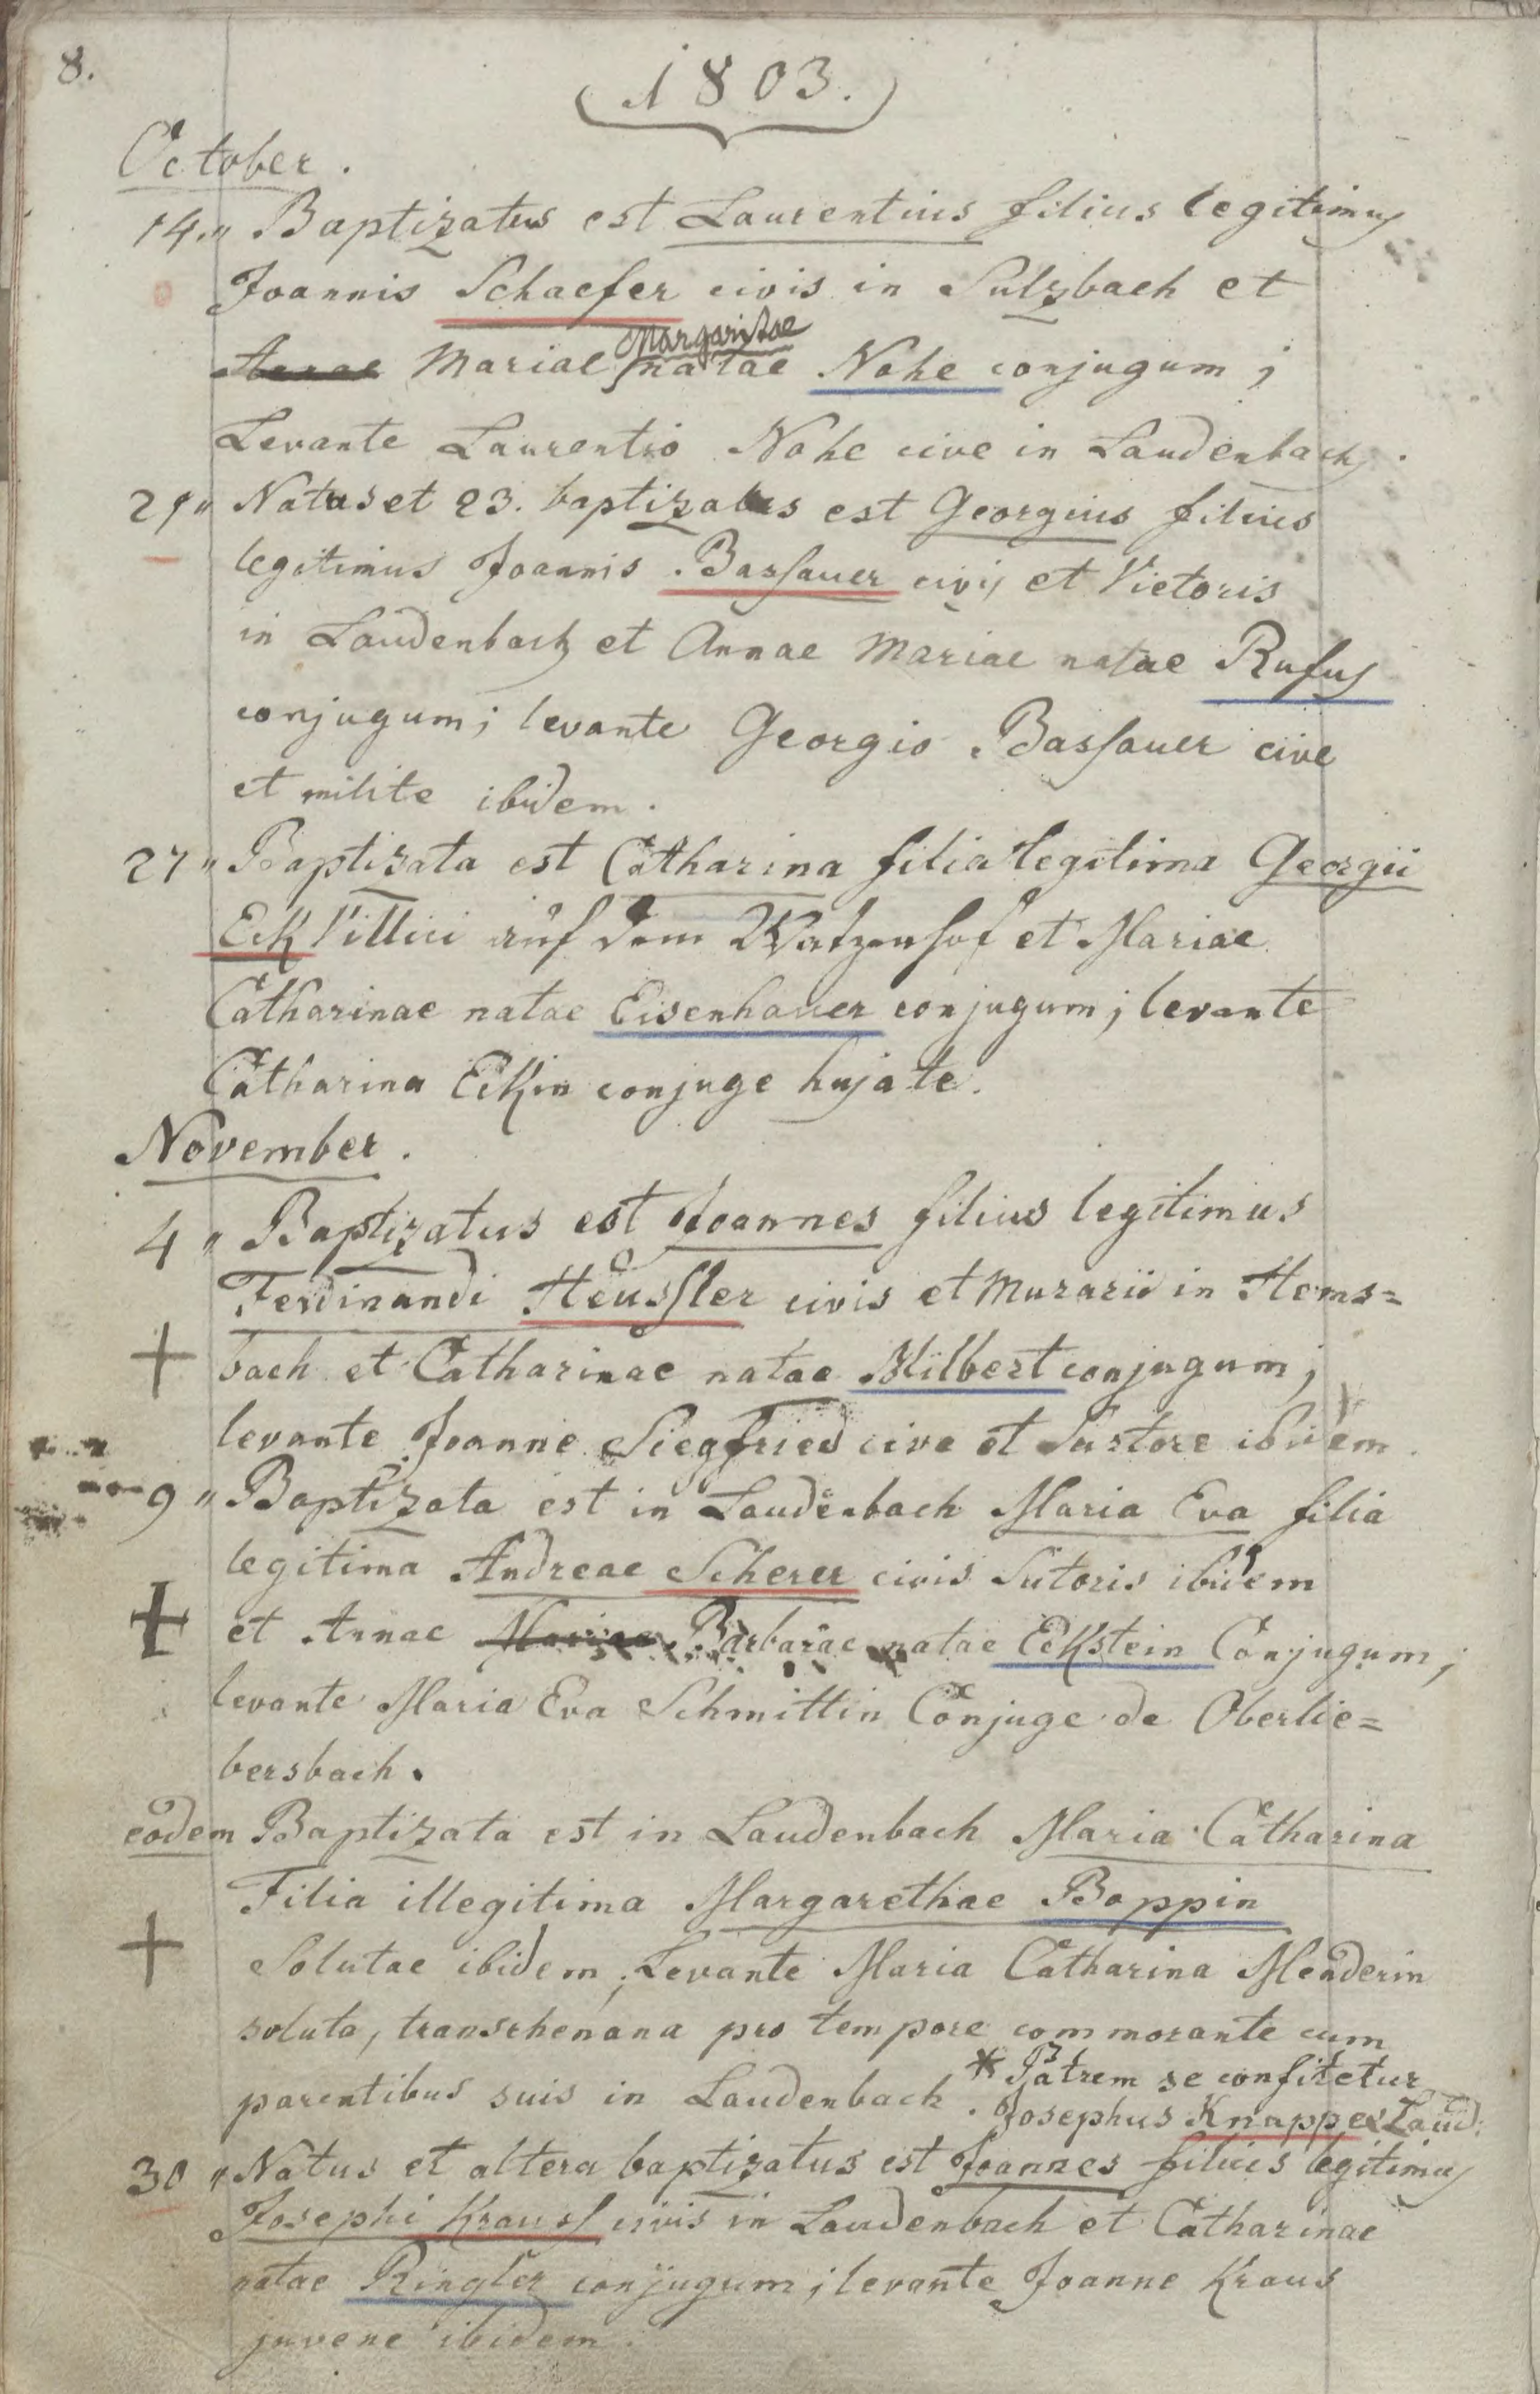 8.
1803.
October.
14.,, Baptizatus est Laurentius filius legitimus
Joannis Schaefer civis in Sulzbach et
Annae Mariae Margaritae natae Nohe conjugum;
Levante Laurentio Nohe cive in Laudenbach.
21,, Natus et 23. baptizatus est Georgius filius
legitimus Joannis Bassauer civis et Vietoris
in Laudenbach et Annae Mariae natae Rufus
conjugum; levante Georgio Bassauer cive
et milite ibidem.
27,, Baptizata est Catharina filia legitima Georgii
Eck Villici auf dem Watzenhof et Mariae
Catharinae natae Eisenhauer conjugum; levante
Catharina Eckin conjuge hujate.
November.
4,, Baptizatus est Joannes filius legitimus
Ferdinandi Heussler civis et Murarii in Hems=
bach et Catharinae natae Milbert conjugum;
levante Joanne Siegfried cive et Sartore ibidem.
9,, Baptizata est in Laudenbach Maria Eva filia
legitima Andreae Scherer civis Sutoris ibidem
et Annae Mariae Barbarae natae Eckstein Conjugum;
levante Maria Eva Schmittin Conjuge de Oberlie=
bersbach.
eodem Baptizata est in Laudenbach Maria Catharina
Filia illegitima Margarethae Boppin
Solutae ibidem; Levante Maria Catharina Menderin
soluta, transrhenana pro tempore commorante cum
parentibus suis in Laudenbach. * Patrem se confitetur
Josephus Knapp ex Laud.
30,, Natus et altera baptizatus est Joannes filius legitimus
Josephi Krauss civis in Laudenbach et Catharinae
natae Ringler conjugum; levante Joanne Kraus
juvene ibidem.